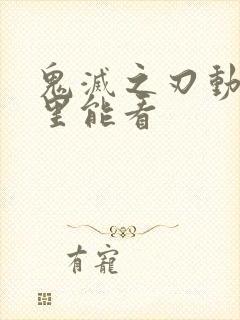 鬼滅之刃動
里能看
有寵